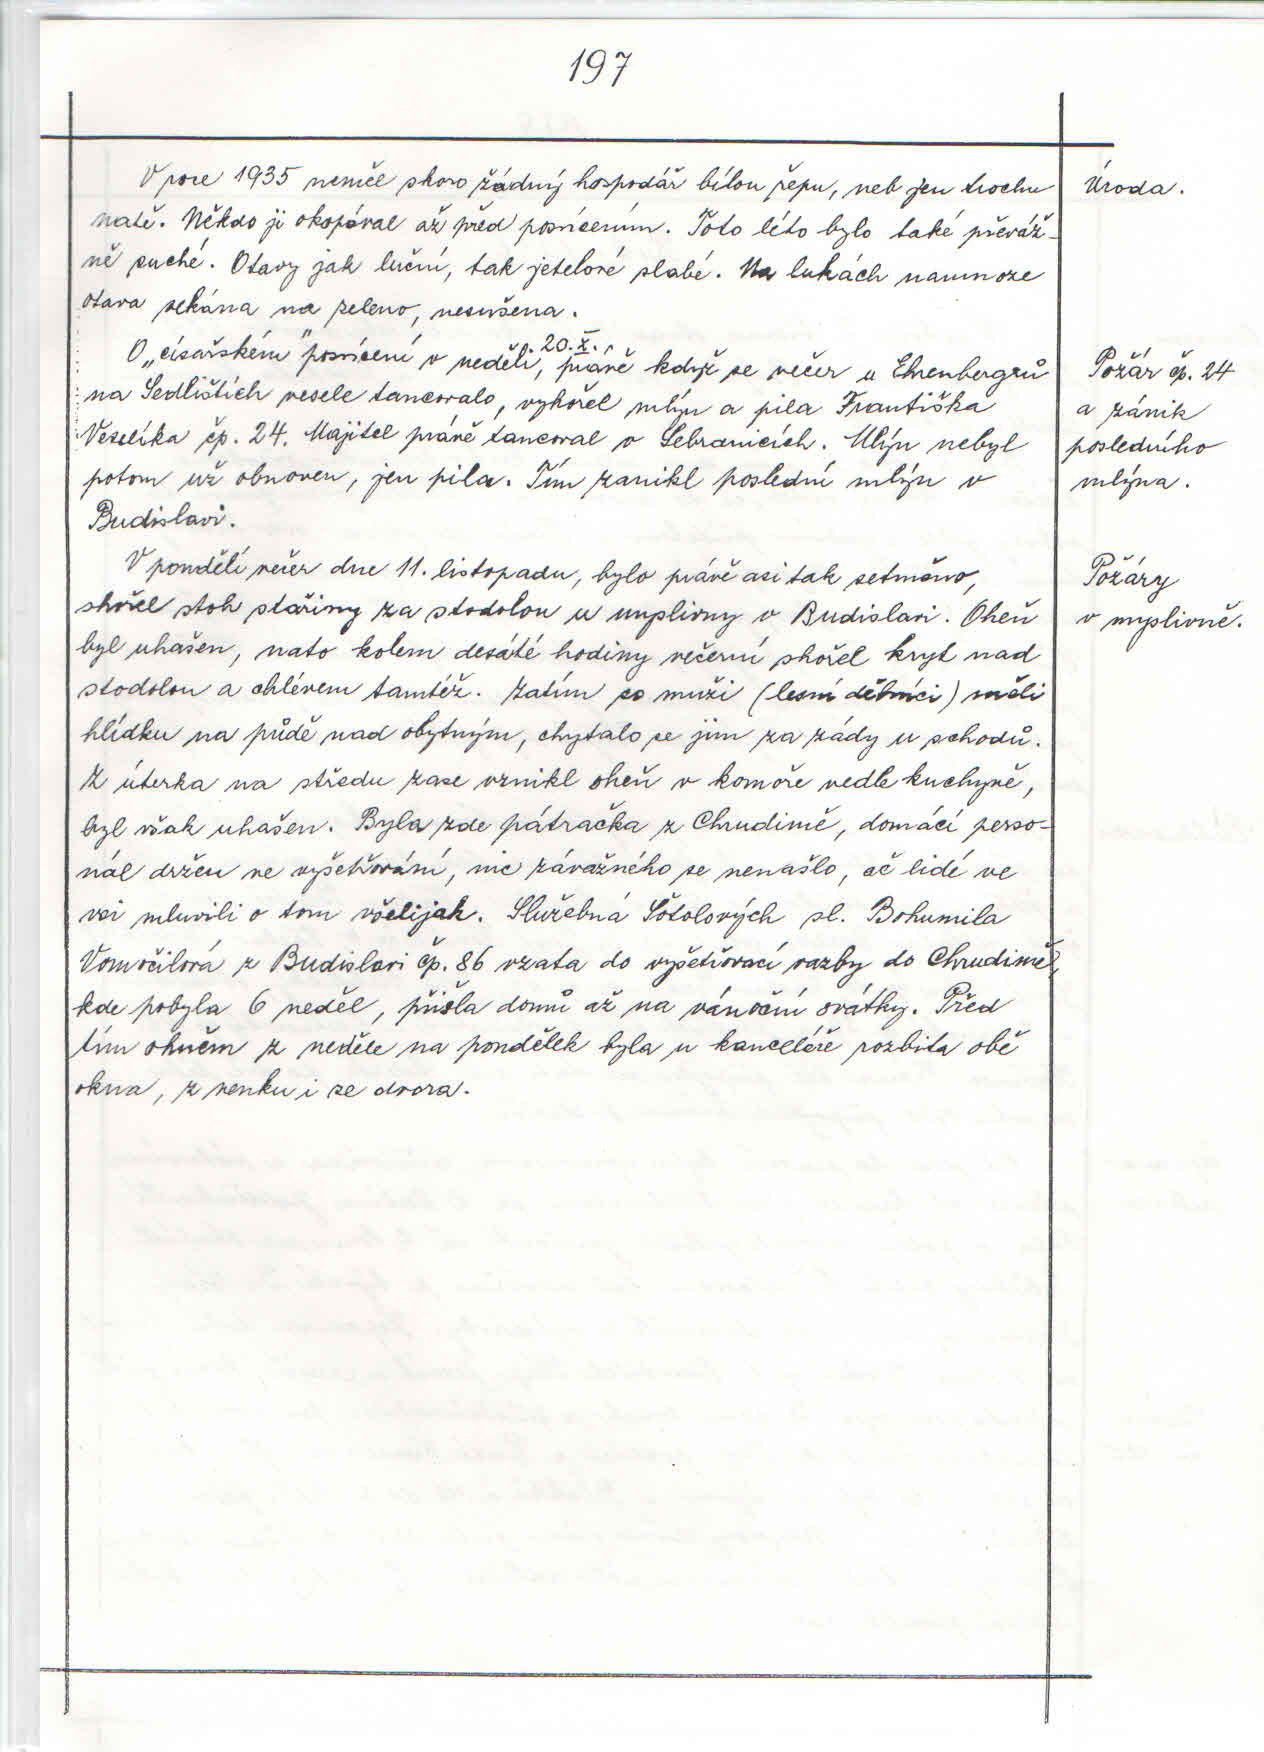 197
V roce 1935 neměl skoro žádný hospodář bílou řepu, neb jen trochu
natě. Někdo ji okopával až před posvícením. Toto léto bylo také převáž-
ně suché. Otavy jak luční, tak jetelové slabé. Na lukách namnoze
otava sekána na zeleno, nesušena.
Úroda.
O „císařském" posvícení v neděli, 20.X., právě když se večer u Ehrenbergrů
na Sedlištích vesele tancovalo, vyhořel mlýn a pila Františka
Veselíka čp. 24. Majitel právě tancoval v Sebranicích. Mlýn nebyl
potom už obnoven, jen pila. Tím zanikl poslední mlýn v
Budislavi.
Požár čp. 24
a zánik
posledního
mlýna.
V pondělí večer dne 11. listopadu, bylo právě asi tak setměno,
shořel stoh stařiny za stodolou u myslivny v Budislavi. Oheň
byl uhašen, nato kolem desáté hodiny večerní shořel kryt nad
stodolou a chlévem tamtéž. Zatím co muži (lesní dělníci) měli
hlídku na půdě nad obytným, chytalo se jim za zády u schodů.
Z úterka na středu zase vznikl oheň v komoře vedle kuchyně,
byl však uhašen. Byla zde pátračka z Chrudimě, domácí perso-
nál držen ve vyšetřování, nic závažného se nenašlo, ač lidé ve
vsi mluvili o tom všelijak. Služebná Šotolových sl. Bohumila
Vomočilová z Budislavi čp. 86 vzata do vyšetřovací vazby do Chrudimě,
kde pobyla 6 neděl, přišla domů až na vánoční svátky. Před
tím ohněm z neděle na pondělek byla u kanceláře rozbita obě
okna, z venku i ze dvora.
Požáry
v myslivně.